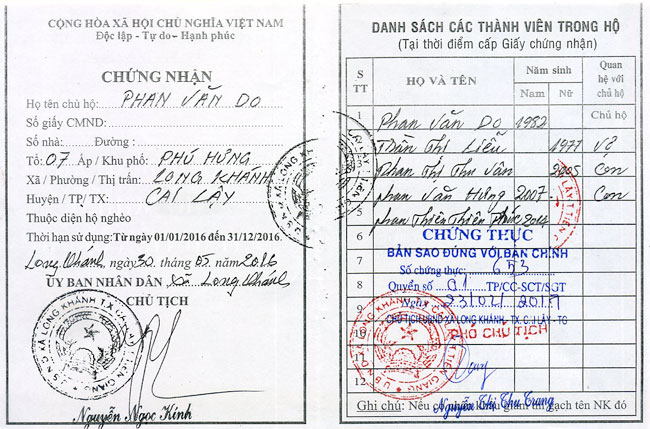 CỘNG HÒA XÃ HỘI CHỦ NGHĨA VIỆT NAM
Độc lập - Tự do - Hạnh phúc
CHỨNG NHẬN
Họ tên chủ hộ: PHAN VĂN DO
Số giấy CMND:
Số nhà: Đường:
Tổ: 07 Ấp / Khu phố: PHÚ HƯNG
Xã / Phường / Thị trấn: LONG KHÁNH
Huyện / TP/ TX: CAI LẬY
Thuộc diện hộ nghèo
Thời hạn sử dụng: Từ ngày 01/01/2016 đến 31/12/2016.
Long Khánh, ngày 30 tháng 05 năm 2016
ỦY BAN NHÂN DÂN xã Long Khánh
CHỦ TỊCH
Nguyễn Ngọc Kính
DANH SÁCH CÁC THÀNH VIÊN TRONG HỘ
(Tại thời điểm cấp Giấy chứng nhận)
S TT HỌ VÀ TÊN Năm sinh Nam Nữ Quan hệ với chủ hộ
1 Phan Văn Do 1982 Chủ hộ
2 Trần Thị Liễu 1977 Vợ
3 Phan Thị Thu Vân 2005 Con
4 Phan Văn Hưng 2007 Con
5 Phan Thiên Thiên Phúc
6 CHỨNG THỰC
7 BẢN SAO ĐÚNG VỚI BẢN CHÍNH
Số chứng thực: 653
8 Quyển số 01 TP/CC-SCT/SGT
9 Ngày 23/02/2017
CHỦ TỊCH UBND XÃ LONG KHÁNH, TX. CAI LẬY - TG
PHÓ CHỦ TỊCH
11
12
Nguyễn Thị Thu Trang
Ghi chú: Nếu có nhân khẩu giảm thì gạch tên NK đó